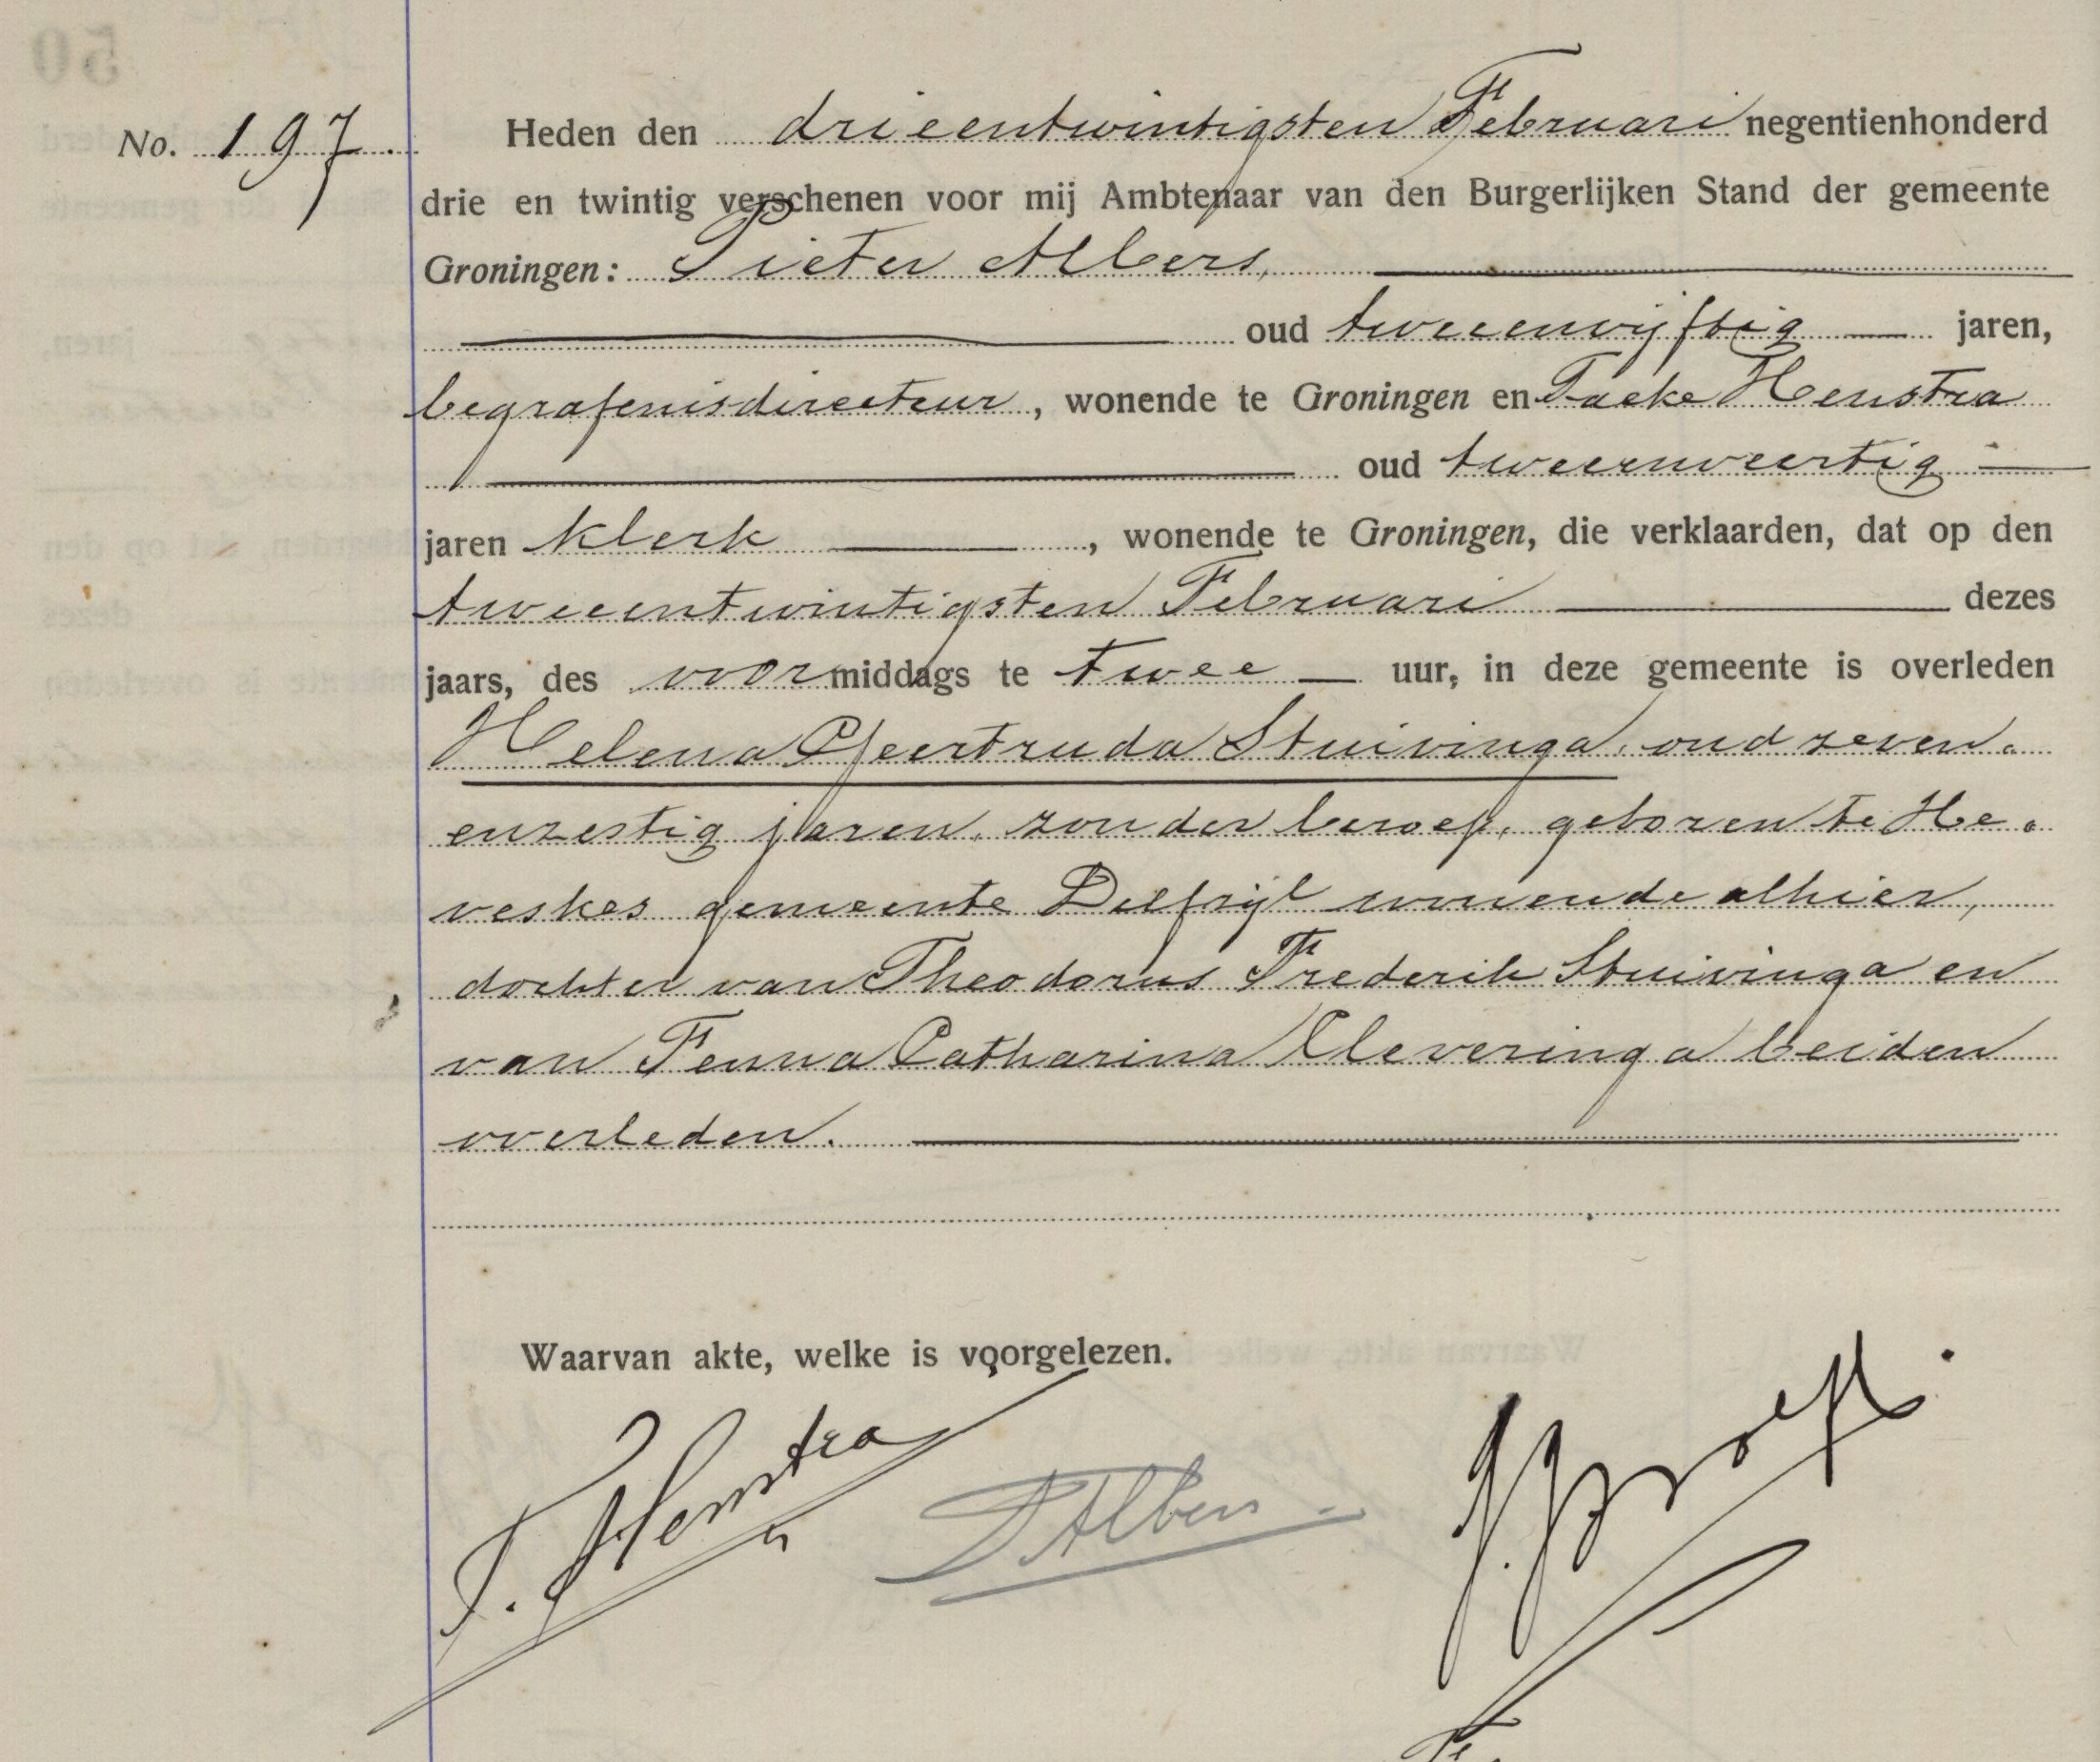 No. 197.
Heden den drieentwintigsten Februari negentienhonderd
drie en twintig verschenen voor mij Ambtenaar van den Burgerlijken Stand der gemeente
Groningen: Pieter Albers,
oud tweeenvijftig jaren,
begrafenisdirecteur, wonende te Groningen en Taeke Henstra
oud tweeenveertig
jaren klerk, wonende te Groningen, die verklaarden, dat op den
tweeentwintigsten Februari dezes
jaars, des voormiddags te twee uur, in deze gemeente is overleden
Helena Geertruda Stuivinga, oud zeven-
enzestig jaren, zonder beroep, geboren te He-
veskes gemeente Delfzijl wonende alhier,
dochter van Theodorus Frederik Stuivinga en
van Fenna Catharina Cleveringa beiden
overleden.
Waarvan akte, welke is voorgelezen.
T. Henstra PAlbers